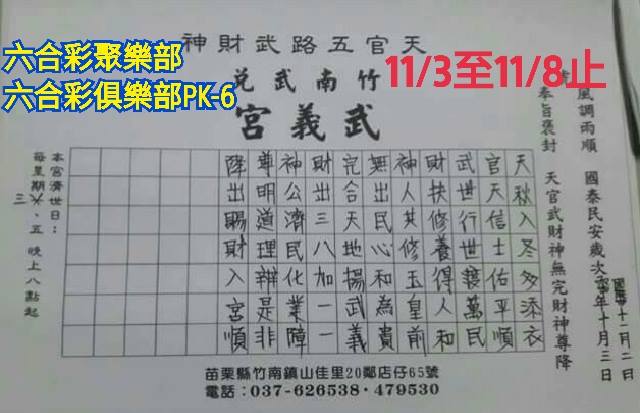 天官五路武財神
六合彩聚樂部
六合彩俱樂部PK-6
11/3至11/8止
竹南武兌
武義宮
風調雨順 國泰民安歲次
十二月二日
年十月三日
奉旨褒封 天官武財神無完財神尊降
天秋入冬多添衣
官天信士佑平順
武世行世襄萬民
財扶修養得人和
神人其修玉皇前
無出民心和為貴
完合天地揚武義
財出三八加一一
神公濟民化業障
尊明道理辨是非
降出賜財入宮順
本宮濟世日：
每星期三、五 晚上八點起
苗栗縣竹南鎮山佳里20鄰店仔65號
電話：037-626538·479530